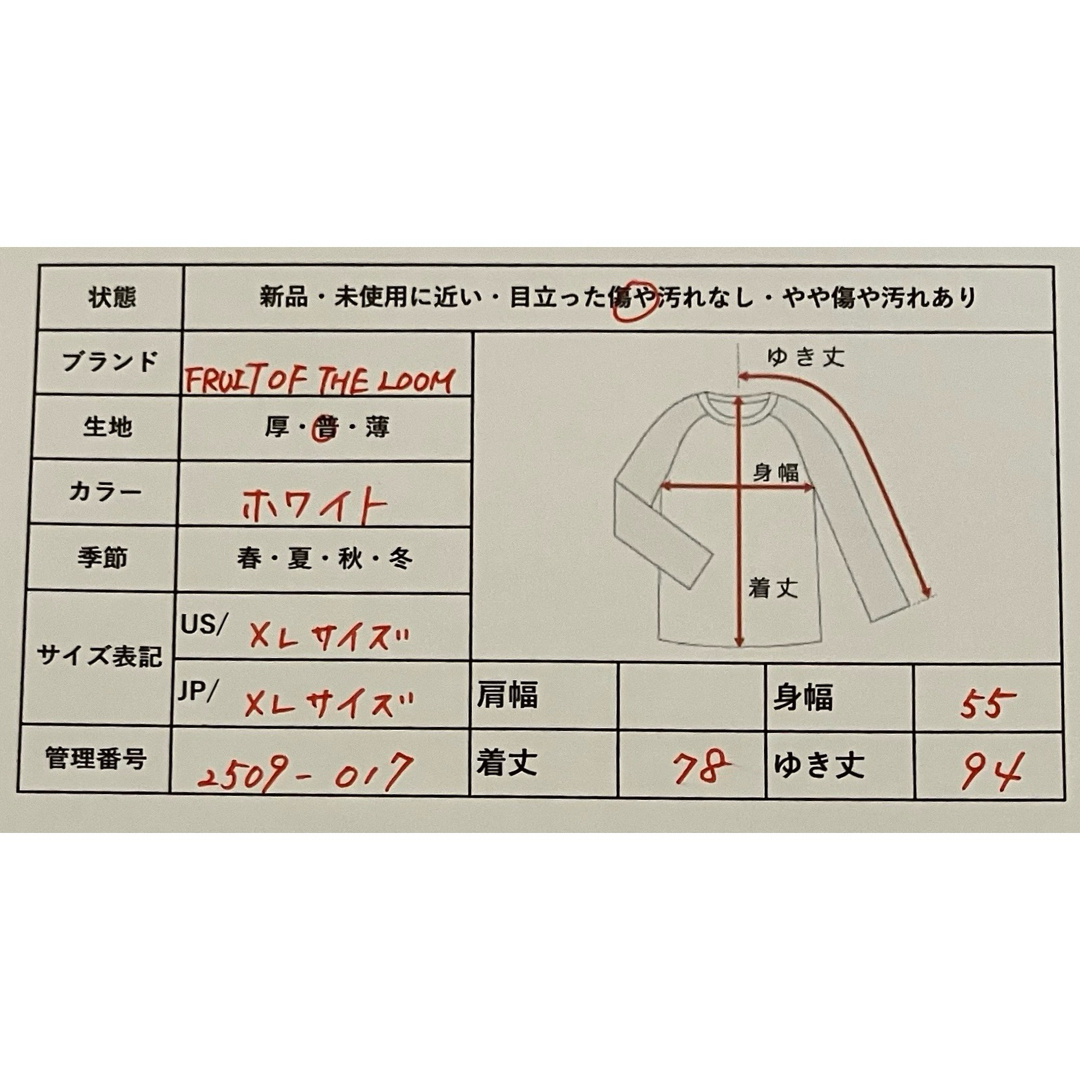 状態 新品・未使用に近い・目立った傷や汚れなし・やや傷や汚れあり
ブランド FRUIT OF THE LOOM
生地 厚・普・薄
カラー ホワイト
季節 春・夏・秋・冬
サイズ表記 US/ XLサイズ
JP/ XLサイズ
管理番号 2509-017
ゆき丈
身幅
着丈
肩幅 身幅 55
着丈 78 ゆき丈 94